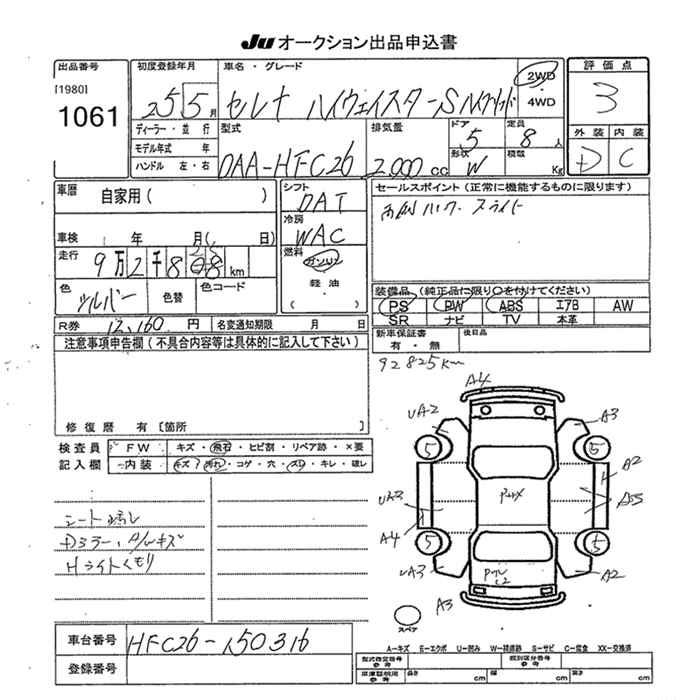 Ju オークション出品申込書
出品番号
[1980]
1061
初度登録年月
25 5 月
ディーラー・並行
モデル年式 年
ハンドル 左・右
車名・グレード
セレナ ハイウェイスターS ハイブリッド
2WD
・
4WD
型式
DAA-HFC26
排気量
2,000 cc
ドア
5
形状
W
定員
8 人
積載
Kg
評価点
3
外装 内装
D C
車歴
自家用( )
車検
年 月( 日)
走行
9万2千8 km
色
シルバー
色替
色コード
シフト
DAT
冷房
WAC
燃料
ガソリン
軽油
( )
セールスポイント(正常に機能するものに限ります)
両側ハンズ スライド
装備品(純正品に限り○を付けてください)
PS PW ABS エアB AW
SR ナビ TV 本革
R券 12,160 円 名変通知期限 月 日
新車保証書
有・無
後日品
92825km
注意事項申告欄(不具合内容等は具体的に記入して下さい)
修復歴 有〔箇所 〕
検査員
記入欄
FW キズ・飛石・ヒビ割・リペア跡・×要
内装 キズ・汚れ・コゲ・穴・スレ・キレ・破レ
シート汚レ
Dミラー、A/Wキズ
Hライトくもり
A4
UA2
A3
5
5
A2
UA3
A4
A5
5
5
UA3
A2
A3
スペア
車台番号
HFC26-150316
登録番号
A-キズ E-エクボ U-凹み W-補修跡 S-サビ C-腐食 XX-交換済
型式指定番号
参考
類別区分番号
参考
車庫証明用
参考
長さ cm 幅 cm 高さ cm